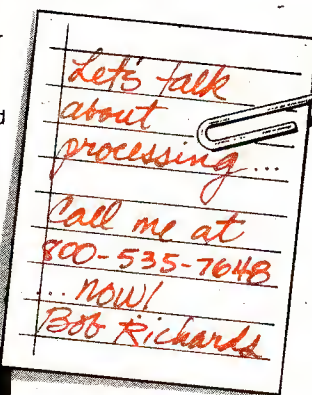 Let's talk
about
processing...
Call me at
800-535-7648
...now!
Bob Richards